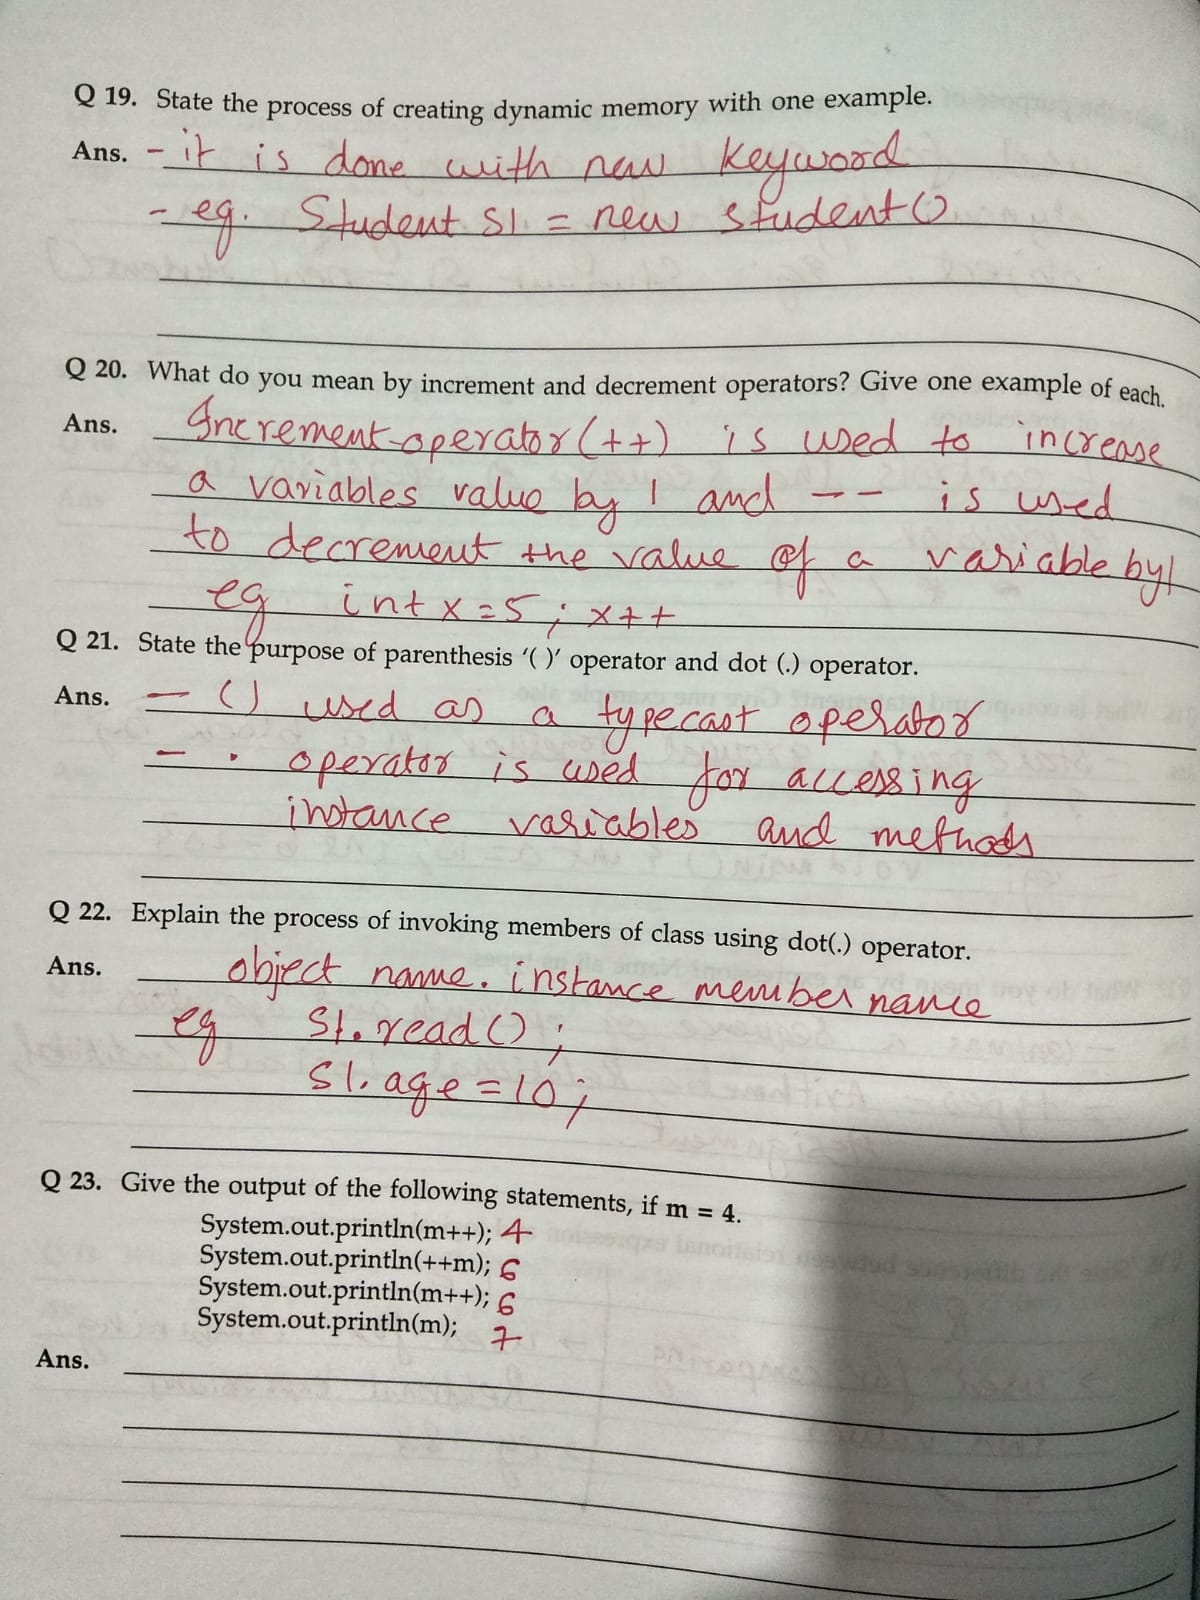 Q 19. State the process of creating dynamic memory with one example.
Ans. - it is done with new keyword
- eg. Student S1 = new student()
Q 20. What do you mean by increment and decrement operators? Give one example of each.
Ans. Increment operator (++) is used to increase
a variables value by 1 and -- is used
to decrement the value of a variable by 1
eg int x = 5 ; x++
Q 21. State the purpose of parenthesis ‘( )’ operator and dot (.) operator.
Ans. — () used as a typecast operator
— . operator is used for accessing
instance variables and methods
Q 22. Explain the process of invoking members of class using dot(.) operator.
Ans. object name. instance member name
eg S1.read() ;
S1. age = 10 ;
Q 23. Give the output of the following statements, if m = 4.
System.out.println(m++); 4
System.out.println(++m); 6
System.out.println(m++); 6
System.out.println(m); 7
Ans.